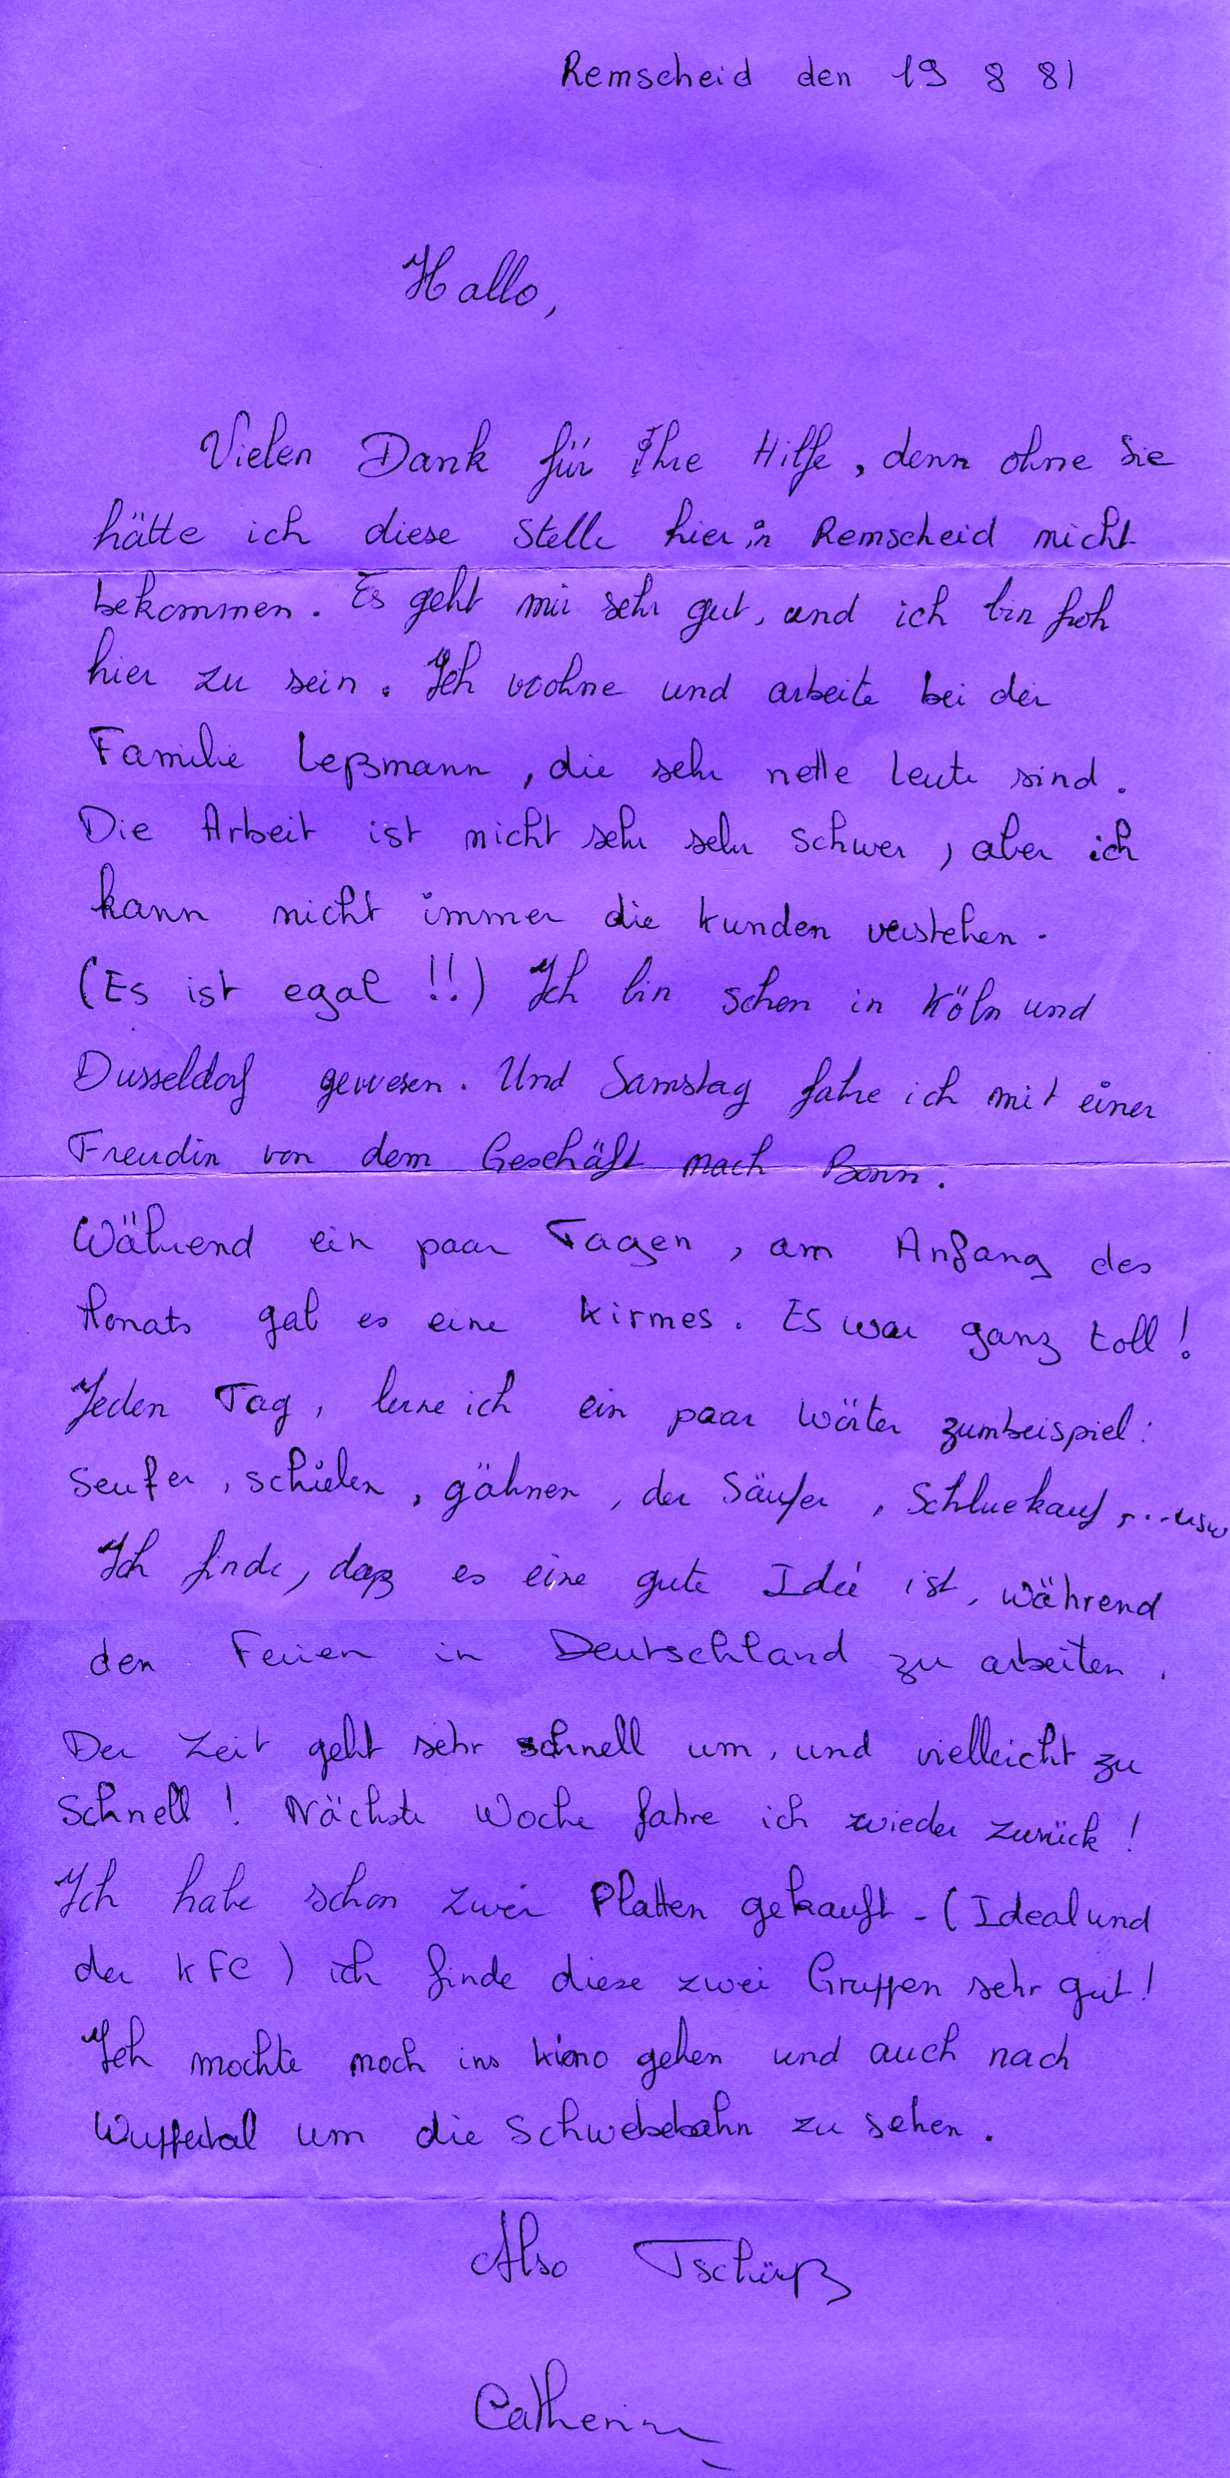 Remscheid den 19 8 81
Hallo,
Vielen Dank für Ihre Hilfe, denn ohne Sie
hätte ich diese Stelle hier in Remscheid nicht
bekommen. Es geht mir sehr gut, und ich bin froh
hier zu sein. Ich wohne und arbeite bei der
Familie Leßmann, die sehr nette Leute sind.
Die Arbeit ist nicht sehr sehr schwer, aber ich
kann nicht immer die Kunden verstehen.
(Es ist egal !!) Ich bin schon in Köln und
Dusseldorf gewesen. Und Samstag fahre ich mit einer
Freudin von dem Geschäft nach Bonn.
Während ein paar Tagen, am Anfang des
Monats gab es eine Kirmes. Es war ganz toll!
Jeden Tag, lerne ich ein paar Wörter zumbeispiel:
seufer, schielen, gähnen, der Säufer, Schluekauf, ... usw
Ich finde, daß es eine gute Ideé ist, während
den Ferien in Deutschland zu arbeiten.
Der Zeit geht sehr schnell um, und vielleicht zu
schnell! Nächste Woche fahre ich wieder zurück!
Ich habe schon zwei Platten gekauft - (Ideal und
der KFC) ich finde diese zwei Gruppen sehr gut!
Ich mochte noch ins Kino gehen und auch nach
Wuppertal um die Schwebebahn zu sehen.
Also Tschüß
Catherine